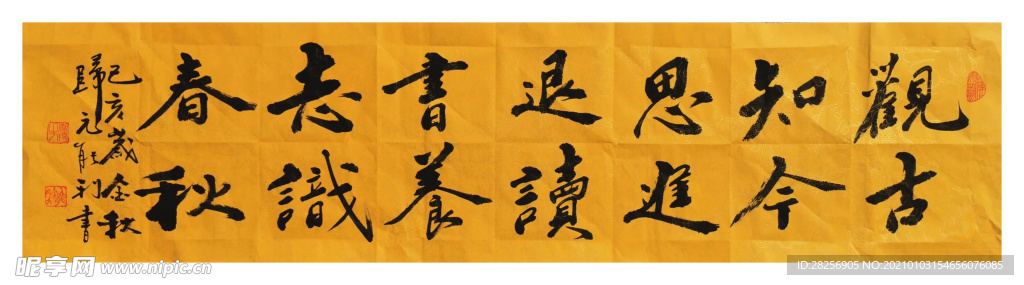 觀古
知今
思進
退讀
書養
志識
春秋
己亥歲金秋
歸元能利書
昵享网 www.nipic.cn
ID:28256905 NO:20210103154656076085